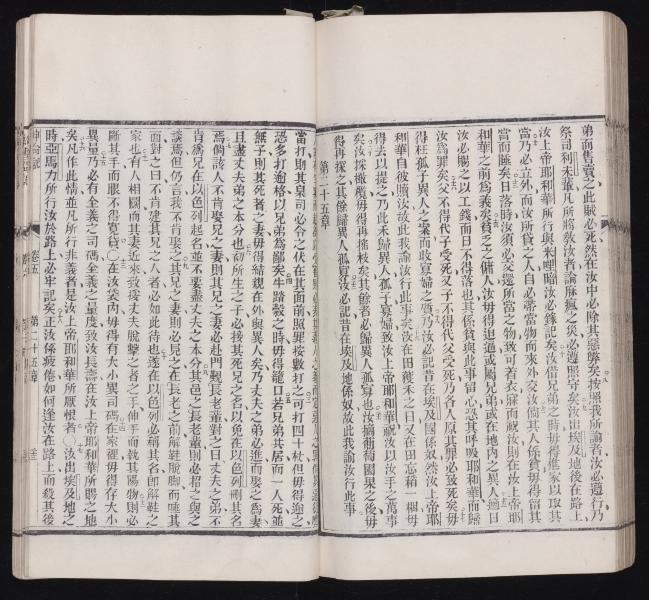 弟而售賣之此賊必死然在汝中必除其惡弊矣按照我所諭者汝必遵行乃
祭司利未輩凡所將教汝者論痳瘋之災必遵照守矣汝出埃及地後在路上
汝上帝耶和華所行與米哩暗汝必錄記矣汝借兄弟之時毋得進家以取其
當乃必立外而汝所貸之人自必帶當物而來外交汝倘其人係貧毋得留其
當而睡矣日落時汝須必交還所當之物致可着衣寐而祝汝則在汝上帝耶
和華之前爲義矣貧乏之傭人汝毋得迫逼或屬兄弟或在地內之異人趂日
汝必賜之以工錢而日不得落也其係貧與此事留心恐其呼吸耶和華而歸
汝爲罪矣父不得代子受死又子不得代父受死乃各人原其罪必致死矣毋
得枉孤子異人之案而收寡婦之質乃汝必記昔在埃及國係奴然汝上帝耶
和華自彼贖汝故此我諭汝行此事矣汝在田穫禾之日又在田忘稍一梱毋
得去以提之乃此禾歸異人孤子寡婦致汝上帝耶和華祝汝以汝手之萬事
矣汝採橄欖毋得再搖枝矣其餘者必歸異人孤寡也汝摘葡萄園菓之後毋
得再採之其餘歸異人孤寡汝必記昔在埃及地係奴故此我諭汝行此事
第二十五章
當打則其臬司必令之伏在其面前照罪按數打之可打四十杖但毋得逾之
恐多打逾格以兄弟爲鄙矣牛踏穀之時毋得籠口若兄弟共居而一人死並
無子則其死者之妻毋得結親在外與異人矣乃丈夫之弟必進而娶之爲妻
且盡丈夫弟之本分也刼所生之子必接其死兄之名以免在以色列刪其名
焉倘該人不肯娶兄之妻則其兄之妻必赴門觀長老輩對之曰丈夫之弟不
肯爲兄在以色列起名並不要盡丈夫之本分其邑之長老輩則必招之與之
談焉但仍言我不肯娶之其兄之妻則必見之在長老之前解鞋脫脚而唾其
面對之曰不肯建其兄之人者必如此待也遂在以色列必稱其名卽解鞋之
家也有人相鬬而其妻近來致援丈夫脫擊之者之手伸手而執其陽物則必
斷其手而眼不得寬貸〇在汝袋內毋得有大小異司碼在家裡毋得存大小
異量乃必有全義之司碼全義之量度致汝長壽在汝上帝耶和華所賜之地
矣凡作此情並凡所行非義者是汝上帝耶和華所厭恨者〇汝出埃及地之
時亞馬力所行汝於路上必牢記矣正汝係疲倦如何逢汝在路上而殺其後
申命記
卷五
第二十五章